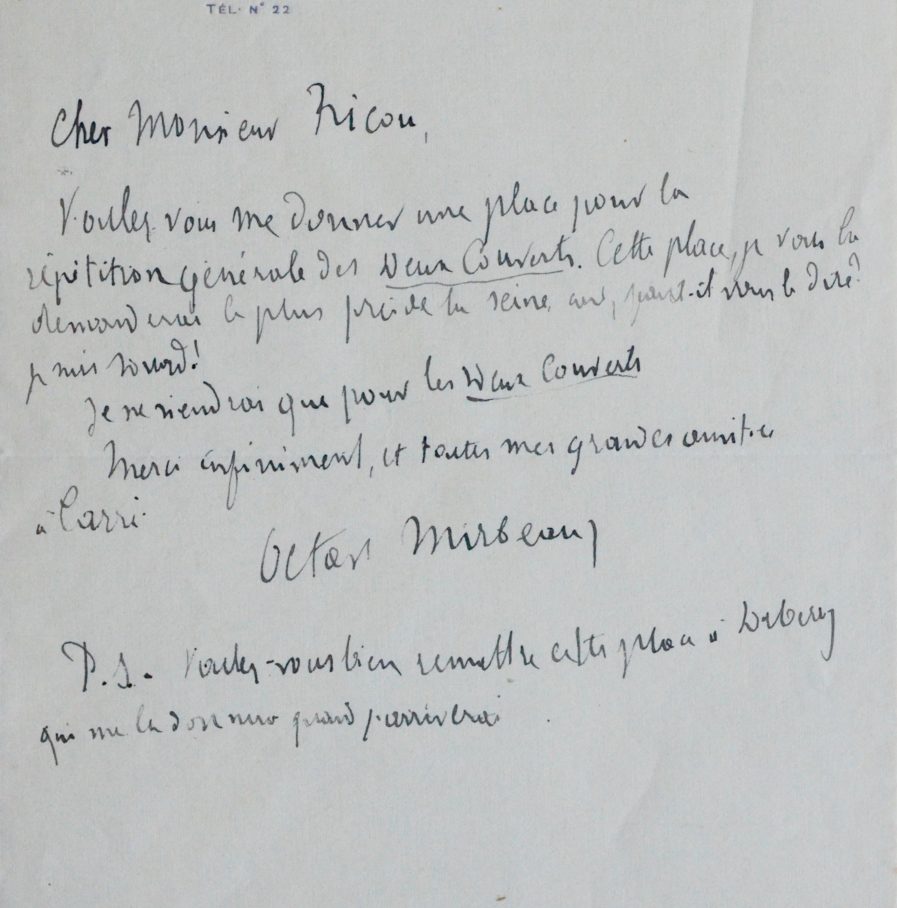 TÉL. N° 22
Cher Monsieur Ricou,
Voulez vous me donner une place pour la
répétition générale des Deux Couverts. Cette place, je vous la
demanderai le plus près de la scène, car, faut-il vous le dire?
je suis sourd!
Je ne viendrai que pour les Deux Couverts
Merci infiniment, et toutes mes grandes amitiés
à Carré.
Octave Mirbeau
P.S. Voulez-vous bien remettre cette place à
qui me la donnera quand j'arriverai.